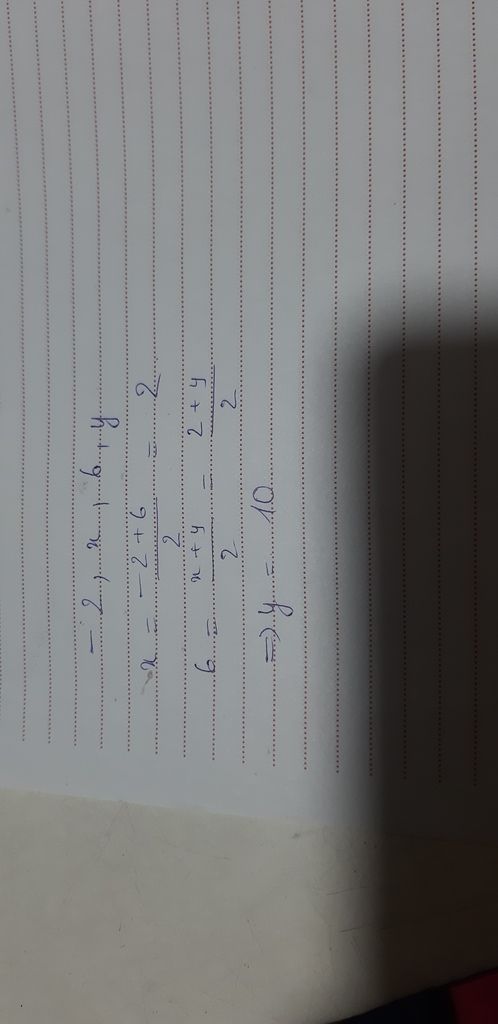 - 2, x, 6, y
x = (-2 + 6)/2 = 2
6 = (x + y)/2 = (2 + y)/2
⇒ y = 10